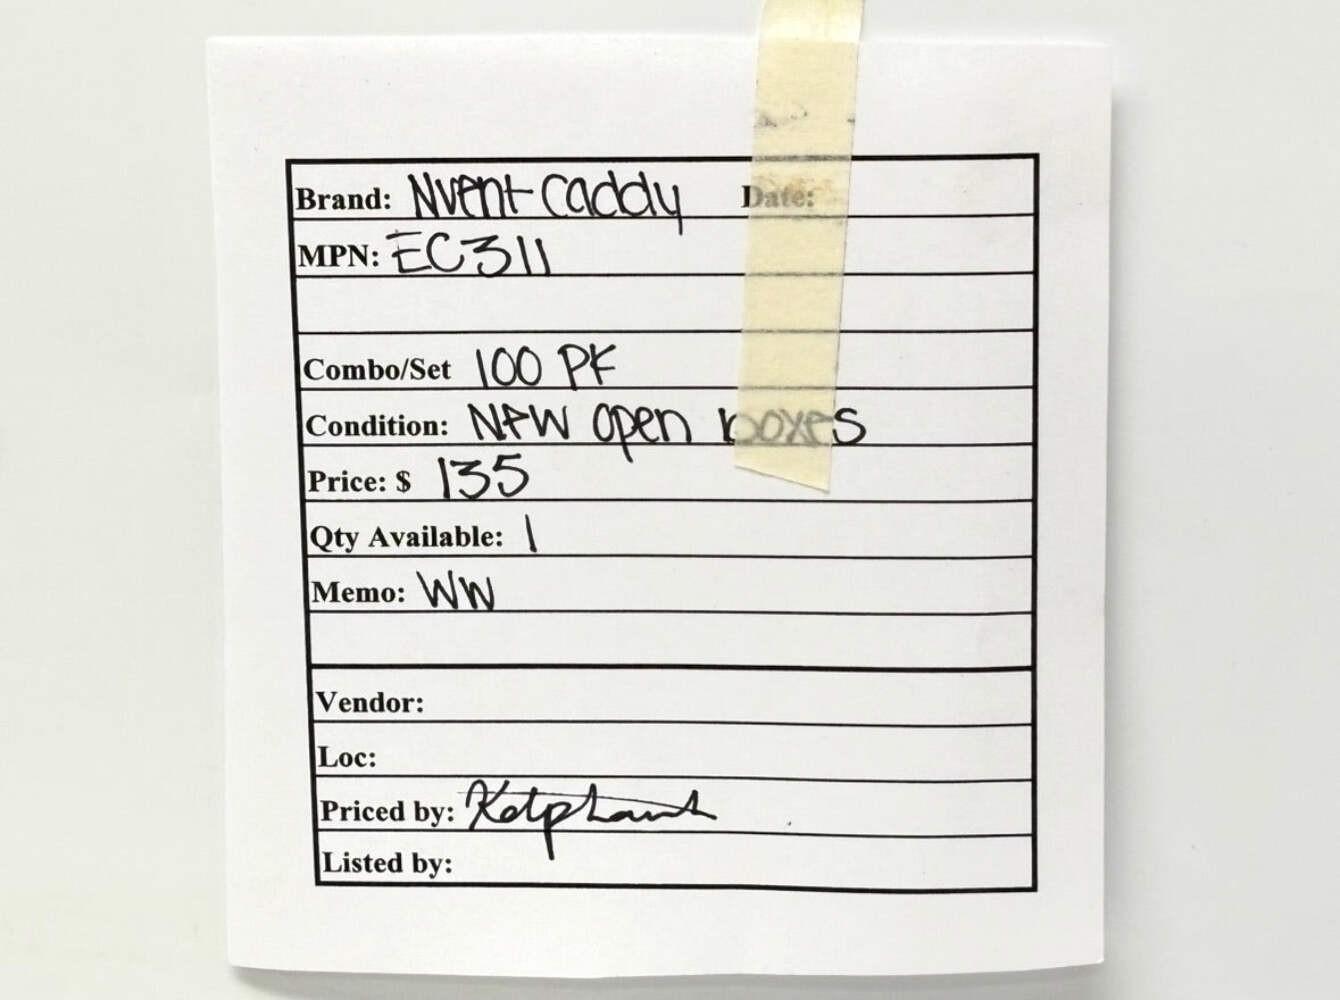 Brand: Nvent Caddy Date:
MPN: EC311
Combo/Set 100 PK
Condition: New open boxes
Price: $ 135
Qty Available: 1
Memo: WW
Vendor:
Loc:
Priced by:
Listed by: